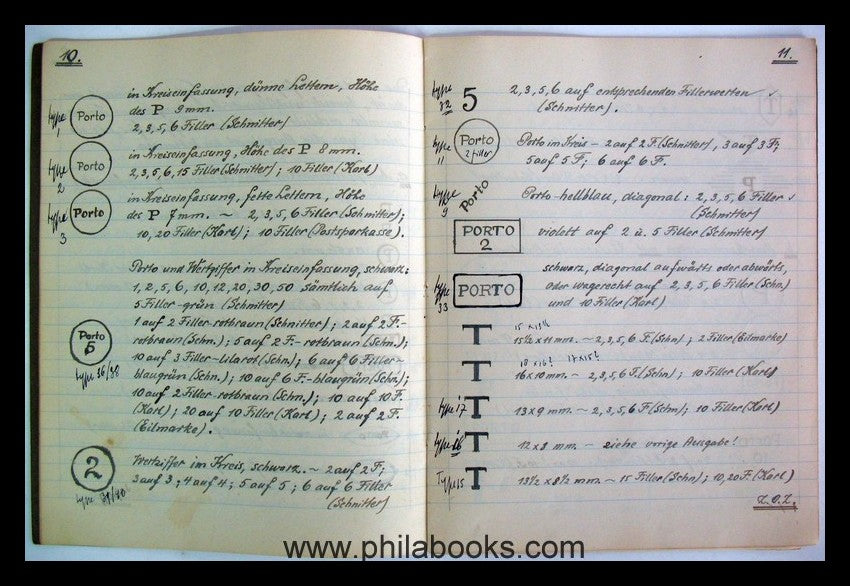 10.
in Kreiseinfassung, dünne Lettern, Höhe
des P 9mm.
type 1
Porto
2, 3, 5, 6 Filler (Schnitter)
in Kreiseinfassung, Höhe des P 8mm.
type 2
Porto
2, 3, 5, 6, 15 Filler (Schnitter); 10 Filler (Karl)
in Kreiseinfassung, fette Lettern, Höhe
type 3
Porto
des P 7mm. ~ 2, 3, 5, 6 Filler (Schnitter);
10, 20 Filler (Karl); 10 Filler (Postsparkasse).
Porto und Wertziffer in Kreiseinfassung, schwarz:
1, 2, 5, 6, 10, 12, 20, 30, 50 sämtlich auf
5 Filler-grün (Schnitter)
Porto
5
type 36/38
1 auf 2 Filler-rotbraun (Schnitter); 2 auf 2 F.-
rotbraun (Schn.); 5 auf 2 F.-rotbraun (Schn.);
10 auf 3 Filler-lilarot (Schn.); 6 auf 6 Filler-
blaugrün (Schn.); 10 auf 6 F.-blaugrün (Schn.);
10 auf 2 Filler-rotbraun (Schn.); 10 auf 10 F.
(Karl); 20 auf 10 Filler (Karl); 2 auf 2 F.
(Eilmarke).
2
type 39/40
Wertziffer im Kreis, schwarz. ~ 2 auf 2 F;
3 auf 3; 4 auf 4; 5 auf 5; 6 auf 6 Filler
(Schnitter)
11.
type
5
2, 3, 5, 6 auf entsprechenden Fillerwerten
(Schnitter).
type 11
Porto
2 filler
Porto im Kreis - 2 auf 2 F. (Schnitter), 3 auf 3 F;
5 auf 5 F; 6 auf 6 F.
type 9
Porto
Porto-hellblau, diagonal: 2, 3, 5, 6 Filler
(Schnitter)
PORTO
2
violett auf 2 u. 5 Filler (Schnitter)
type 33
PORTO
schwarz, diagonal aufwärts oder abwärts,
oder wagerecht auf 2, 3, 5, 6 Filler (Schn.)
und 10 Filler (Karl)
T
15½ x 11 mm. ~ 2, 3, 5, 6 F. (Schn); 2 Filler (Eilmarke)
18 x 16? 17 x 15?
T
16 x 10 mm. ~ 2, 3, 5, 6 F. (Schn); 10 Filler (Karl)
type 17
T
13 x 9 mm. ~ 2, 3, 5, 6 F (Schn); 10 Filler (Karl)
type 16
T
12 x 8 mm. ~ siehe vorige Ausgabe!
Type 15
T
13½ x 8½ mm. ~ 15 Filler (Schn); 10, 20 F. (Karl)
www.philabooks.com